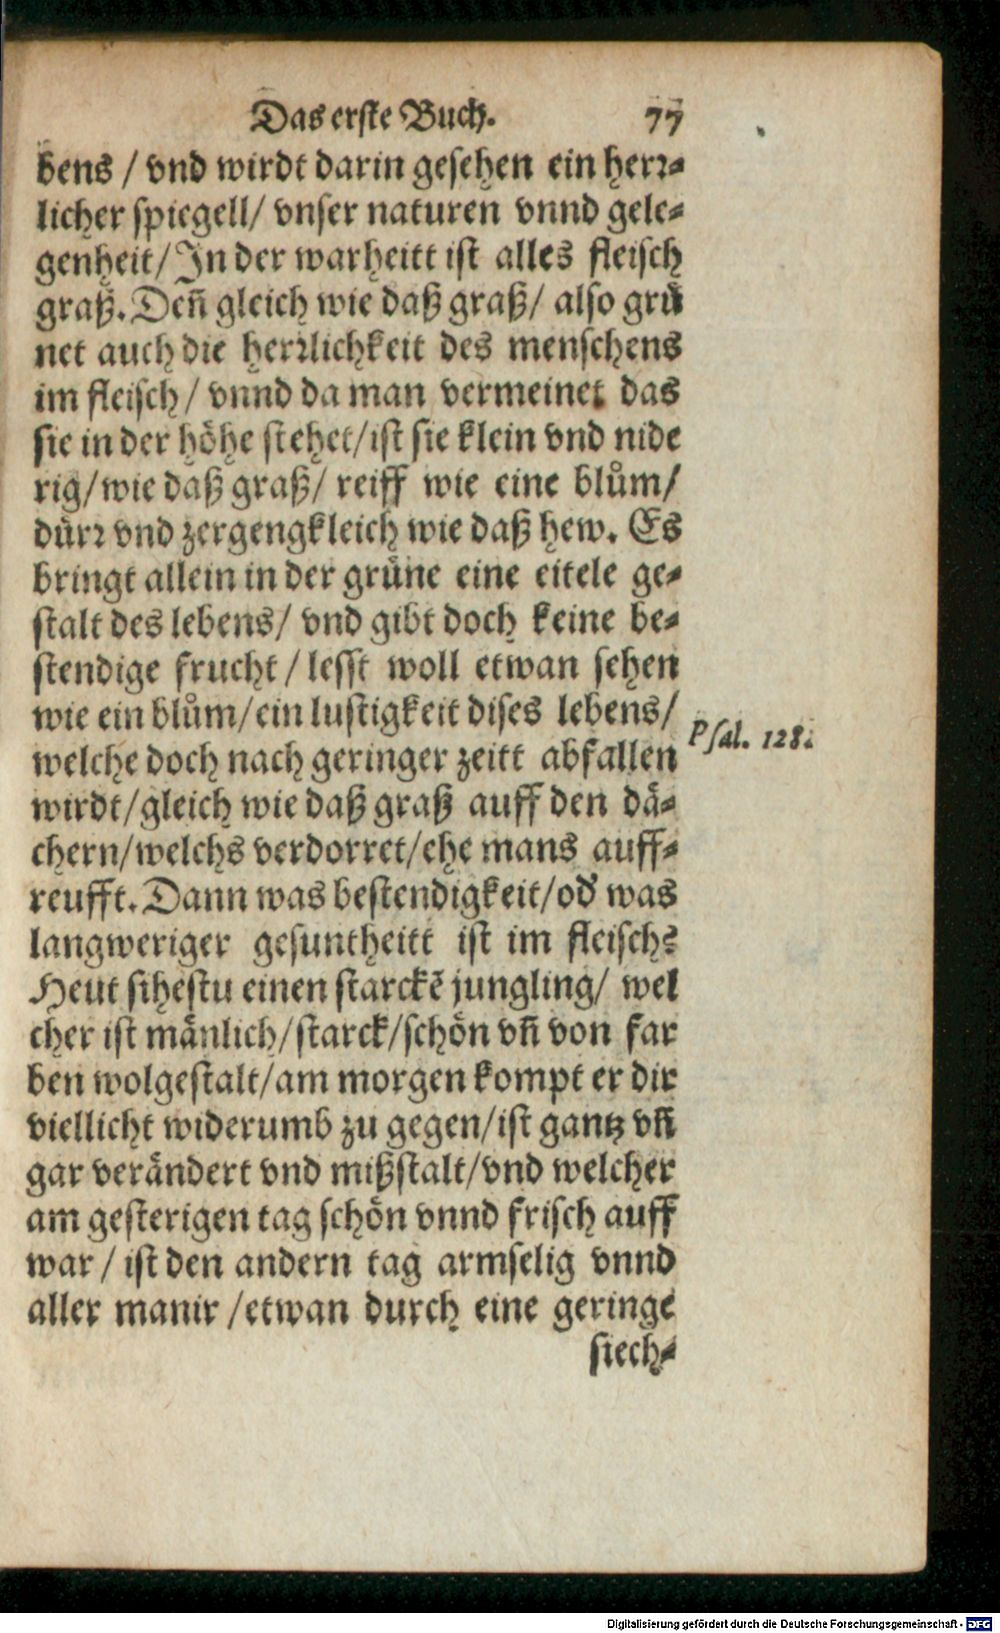 Das erste Buch. 77
bens / vnd wirdt darin gesehen ein herr-
licher spiegell/ vnser naturen vnnd gele-
genheit/ In der warheitt ist alles fleisch
graß. Deñ gleich wie daß graß/ also grů
net auch die herrlichkeit des menschens
im fleisch/ vnnd da man vermeinet das
sie in der höhe stehet/ist sie klein vnd nide
rig/wie daß graß/ reiff wie eine blům/
dürr vnd zergengkleich wie daß hew. Es
bringt allein in der grüne eine eitele ge-
stalt des lebens/ vnd gibt doch keine be-
stendige frucht/ lesst woll etwan sehen
wie ein blům/ein lustigkeit dises lebens/
Psal. 128.
welche doch nach geringer zeitt abfallen
wirdt/gleich wie daß graß auff den dä-
chern/welchs verdorret/ehe mans auff-
reufft. Dann was bestendigkeit/od̕ was
langweriger gesuntheitt ist im fleisch?
Heut sihestu einen starckē jungling/ wel
cher ist mãnlich/starck/schön vñ von far
ben wolgestalt/am morgen kompt er dir
viellicht widerumb zu gegen/ist gantz vñ
gar verändert vnd mißstalt/vnd welcher
am gesterigen tag schön vnnd frisch auff
war/ ist den andern tag armselig vnnd
aller manir/etwan durch eine geringe
siech-
Digitalisierung gefördert durch die Deutsche Forschungsgemeinschaft - DFG